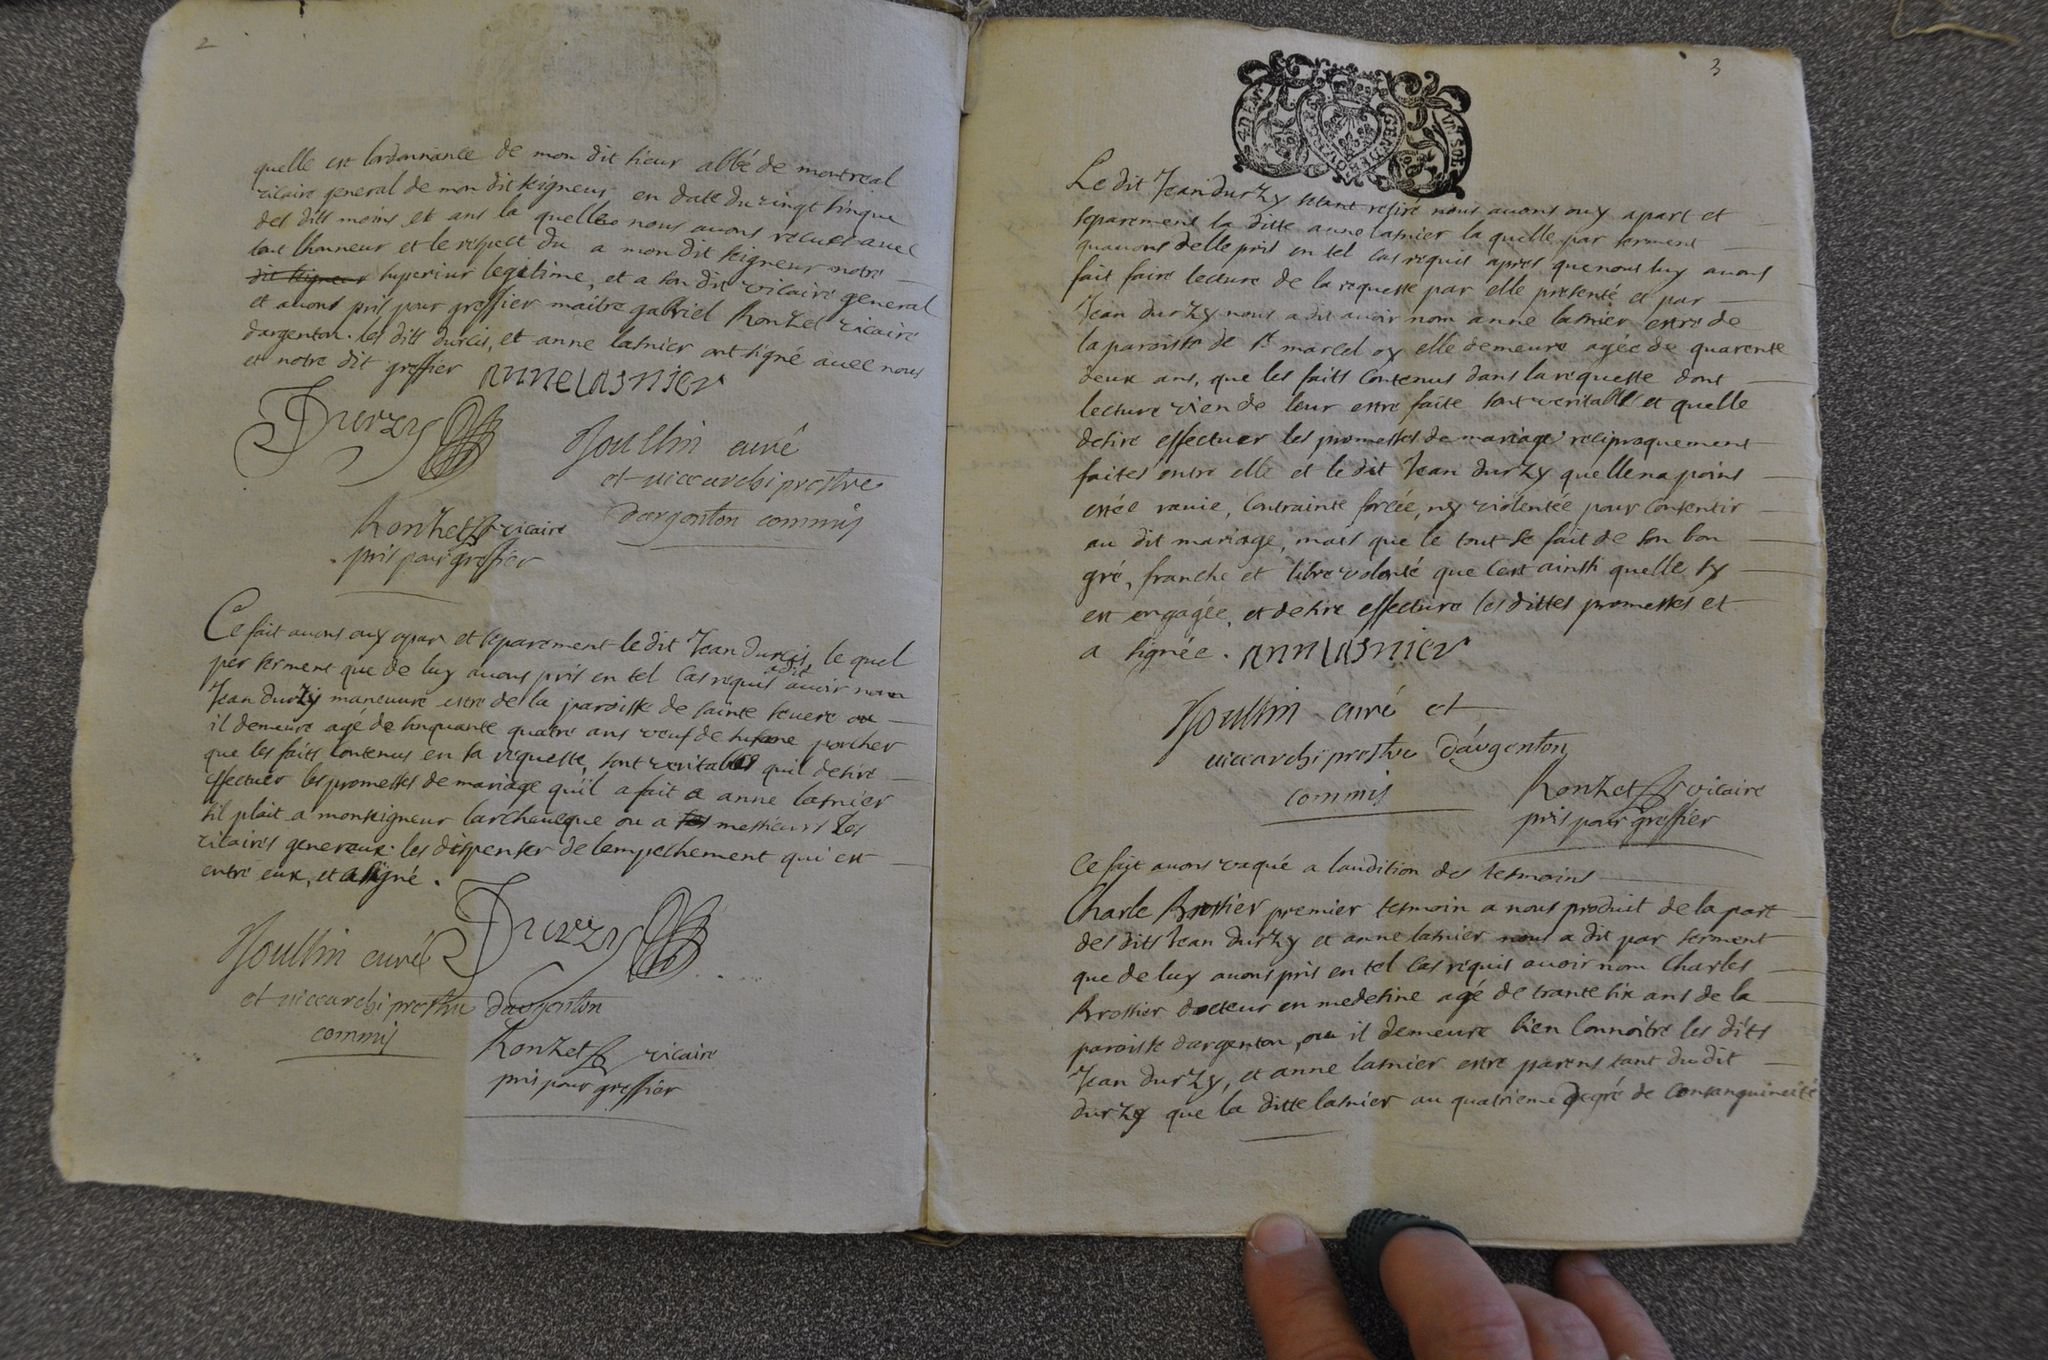 2
quelle est lordonnance de mon dit sieur abbé de montreal
vicaire general de mon dit seigneur en datte du vingt sinque
des dits moins et ans la quelle nous avons recue avec
tout lhonneur et le respect du a mon dit seigneur notre
dit seigneur superieur legitime, et a son dit vicaire general
et avons pris pour greffier maitre gabriel Ronzet vicaire
dargenton. les dits durzis, et anne lasnier ont signé avec nous
et notre dit greffier annelasnier
Durzy
Joullin curé
et vicearchiprestre
dargenton commis
Ronzet vicaire
pris pour greffier
Ce fait avons ouy apar et separement le dit Jean durzis, le quel
per serment que de luy avons pris en tel cas requis a dit avoir nom
Jean durzy maneuvre estre de la paroisse de sainte severe ou
il demeure agé de sinquante quatre ans veuf de susane porcher
que les faits contenus en sa requeste sont veritables quil desire
effectuer les promesses de mariage qu'il a fait a anne lasnier
sil plait a monseigneur larcheveque ou a ses messieurs les
vicaires generaux les dispenser de lempechement qui est
entre eux, et a signé.
Durzy
Joullin curé
et vicearchiprestre dargenton
commis
Ronzet vicaire
pris pour greffier
3
GENER
DE
SOLS
Le dit Jean durzy setant retiré nous avons ouy apart et
separement la ditte anne lasnier la quelle par serment
quavons delle pris en tel cas requis apres que nous luy avons
fait faire lecture de la requeste par elle presenté et par
Jean durzy nous a dit avoir nom anne lasnier estre de
la paroisse de st marcel oy elle demeure agée de quarente
deux ans, que les faits contenus dans la requeste dont
lecture vien de leur estre faite sont veritable et quelle
desire effectuer les promesses de mariage reciproquement
faites entre elle et le dit Jean durzy quelle na poins
estée ravie, contrainte forcée, ny violentée pour consentir
au dit mariage, mais que le tout se fait de son bon
gré, franche et libre volonté que cest ainsi quelle sy
est engagée, et desire effecture les dittes promesses et
a signée. annlasnier
Joullin curé et
vicearchiprestre dargenton
commis
Ronzet vicaire
pris pour greffier
Ce fait avons vaqué a laudition des tesmoins
Charle Brossier premier tesmoin a nous produit de la part
des dits Jean durzy et anne lasnier nous a dit par serment
que de luy avons pris en tel cas requis avoir nom Charles
Brossier docteur en medesine agé de trante six ans de la
paroisse dargenton, ou il demeure bien connoitre les dits
Jean durzy, et anne lasnier estre parens tant du dit
durzy que la ditte lasnier au quatrieme degré de consanguineité